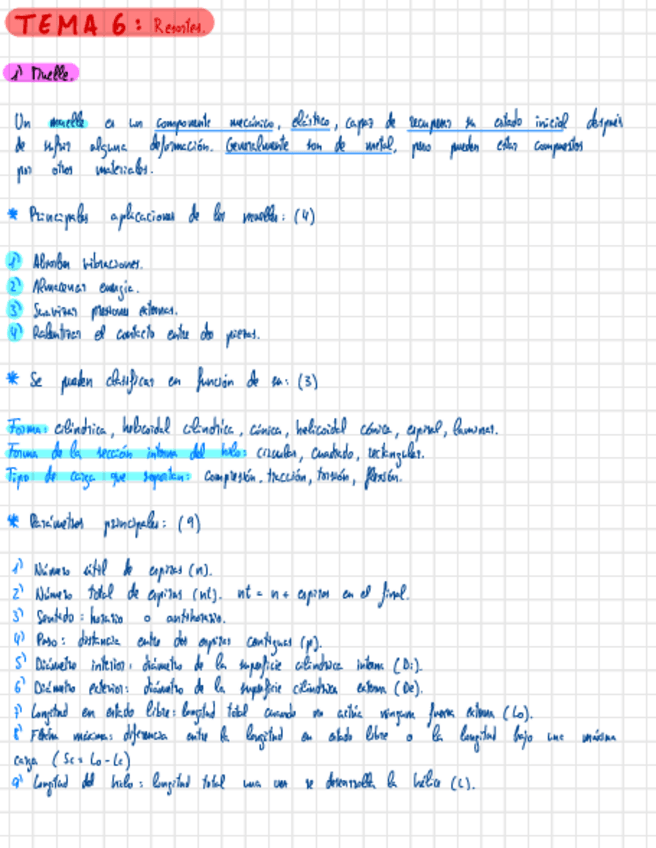 TEMA 6: Resortes.
1) Muelle.
Un muelle es un componente mecánico, elástico, capaz de recuperar su estado inicial después
de sufrir alguna deformación. Generalmente son de metal, pero pueden estar compuestos
por otros materiales.
* Principales aplicaciones de los muelles: (4)
1) Absorber vibraciones.
2) Almacenar energía.
3) Suavizar presiones externas.
4) Ralentizar el contacto entre dos piezas.
* Se pueden clasificar en función de su: (3)
Forma: cilíndrica, helicoidal cilíndrica, cónica, helicoidal cónica, espiral, laminar.
Forma de la sección interna del hilo: circular, cuadrado, rectangular.
Tipo de carga que soportan: compresión, tracción, torsión, flexión.
* Parámetros principales: (9)
1) Número útil de espiras (n).
2) Número total de espiras (nt). nt = n + espiras en el final.
3) Sentido: horario o antihorario.
4) Paso: distancia entre dos espiras contiguas (p).
5) Diámetro interior: diámetro de la superficie cilíndrica interna (Di).
6) Diámetro exterior: diámetro de la superficie cilíndrica externa (De).
7) Longitud en estado libre: longitud total cuando no actúa ninguna fuerza externa (Lo).
8) Flecha máxima: diferencia entre la longitud en estado libre o la longitud bajo una máxima
carga (Sc = Lo - Lc)
9) Longitud del hilo: longitud total una vez se desenrolla la hélice (L).